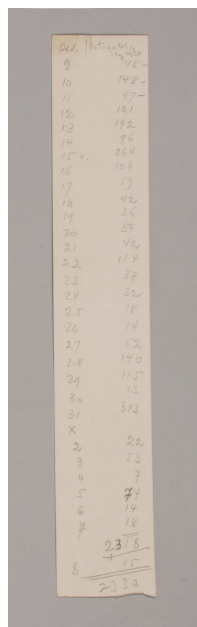 Oct.
9 48 –
10 148 –
11 47 –
12 121
13 192
14 96
15 264
16 102
17 59
18 42
19 26
20 59
21 42
22 114
23 27
24 32
25 18
26 14
27 62
28 140
29 115
30 13
31 393
x
2 22
3 53
4 7
5 74
6 14
7 18
2318
8 15